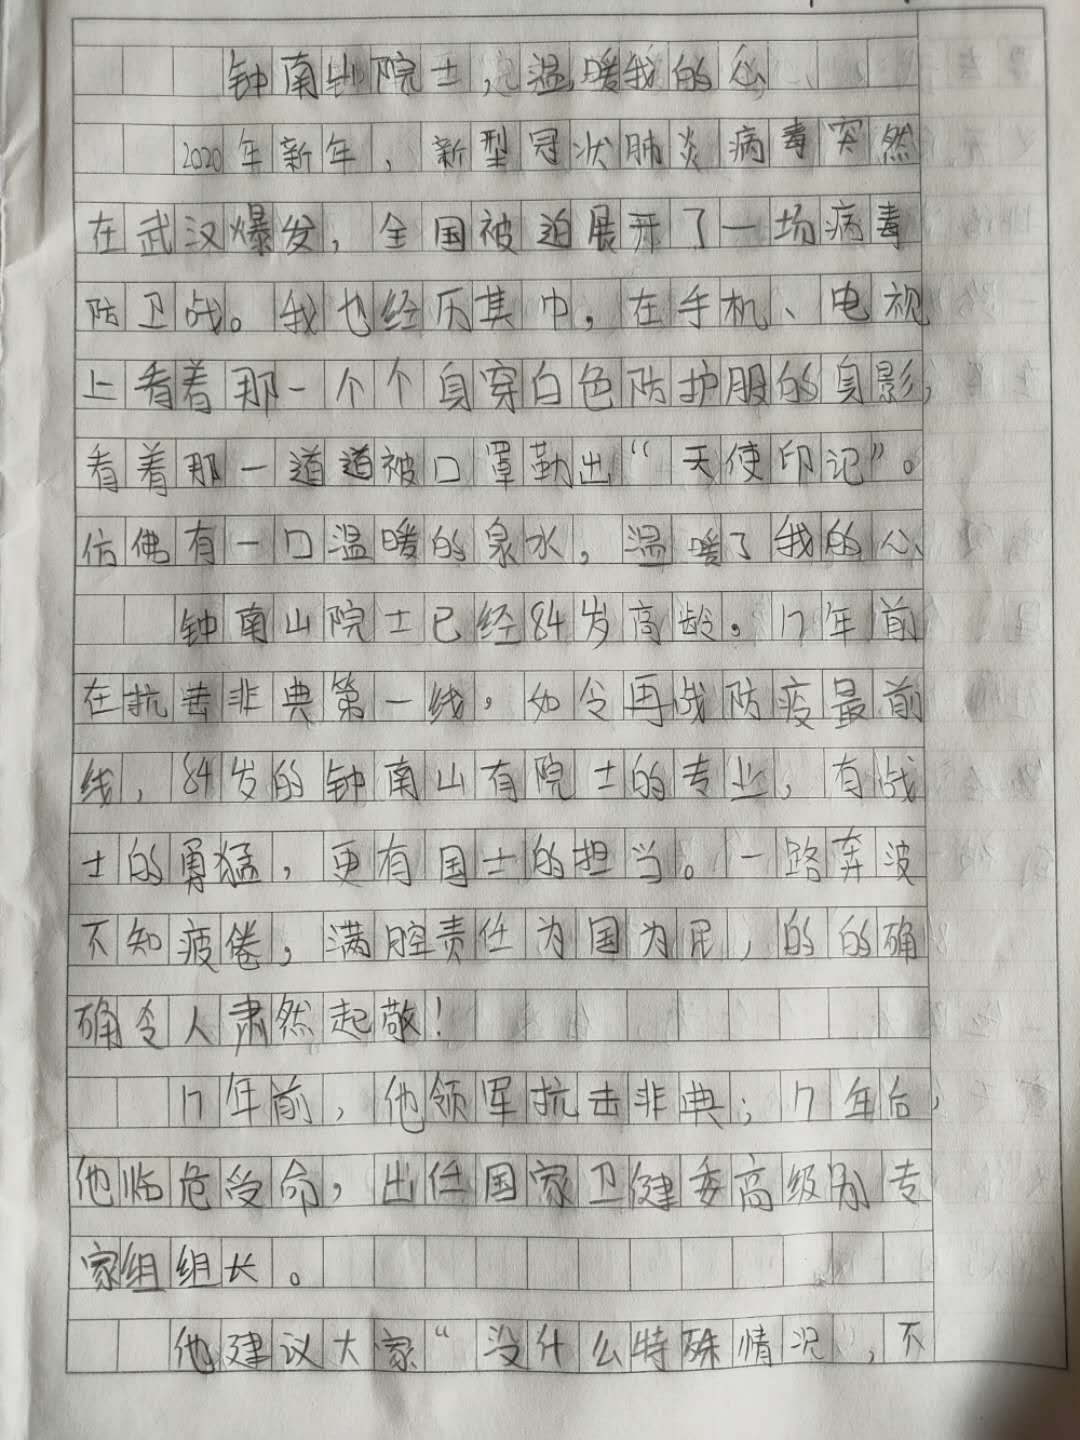 钟南山院士，温暖我的心
2020年新年，新型冠状肺炎病毒突然
在武汉爆发，全国被迫展开了一场病毒
防卫战。我也经历其中，在手机、电视
上看着那一个个身穿白色防护服的身影，
看着那一道道被口罩勒出“天使印记”。
仿佛有一口温暖的泉水，温暖了我的心、
钟南山院士已经84岁高龄。17年前
在抗击非典第一线，如令再战防疫最前
线，84岁的钟南山有院士的专业，有战
士的勇猛，更有国士的担当。一路奔波
不知疲倦，满腔责任为国为民，的的确
确令人肃然起敬！
17年前，他领军抗击非典；17年后，
他临危受命，出任国家卫健委高级别专
家组组长。
他建议大家“没什么特殊情况，不